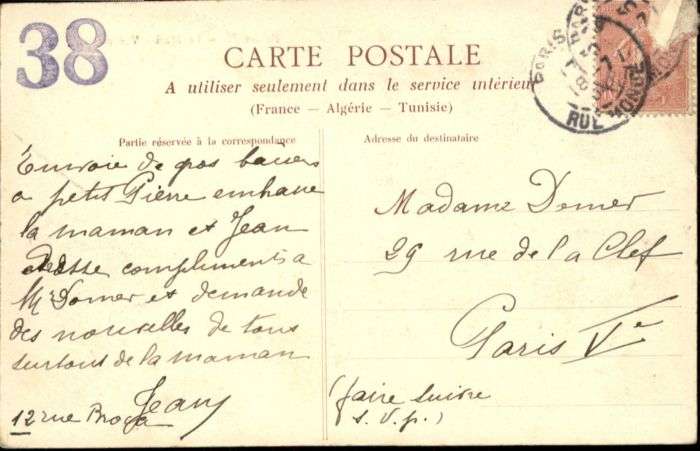 38
CARTE POSTALE
A utiliser seulement dans le service intérieur
(France — Algérie — Tunisie)
Partie réservée à la correspondance
Envoie de gos baisers
a petit Pierre embrasse
la maman et Jean
adresse compliments a
Mr Domer et demande
des nouvelles de tous
surtout de la maman
Jean
12 rue Broca
Adresse du destinataire
Madame Domer
29 rue de la Clef
Paris Ve
(faire suivre
s. v. p.)
PARIS
RUE MONGE